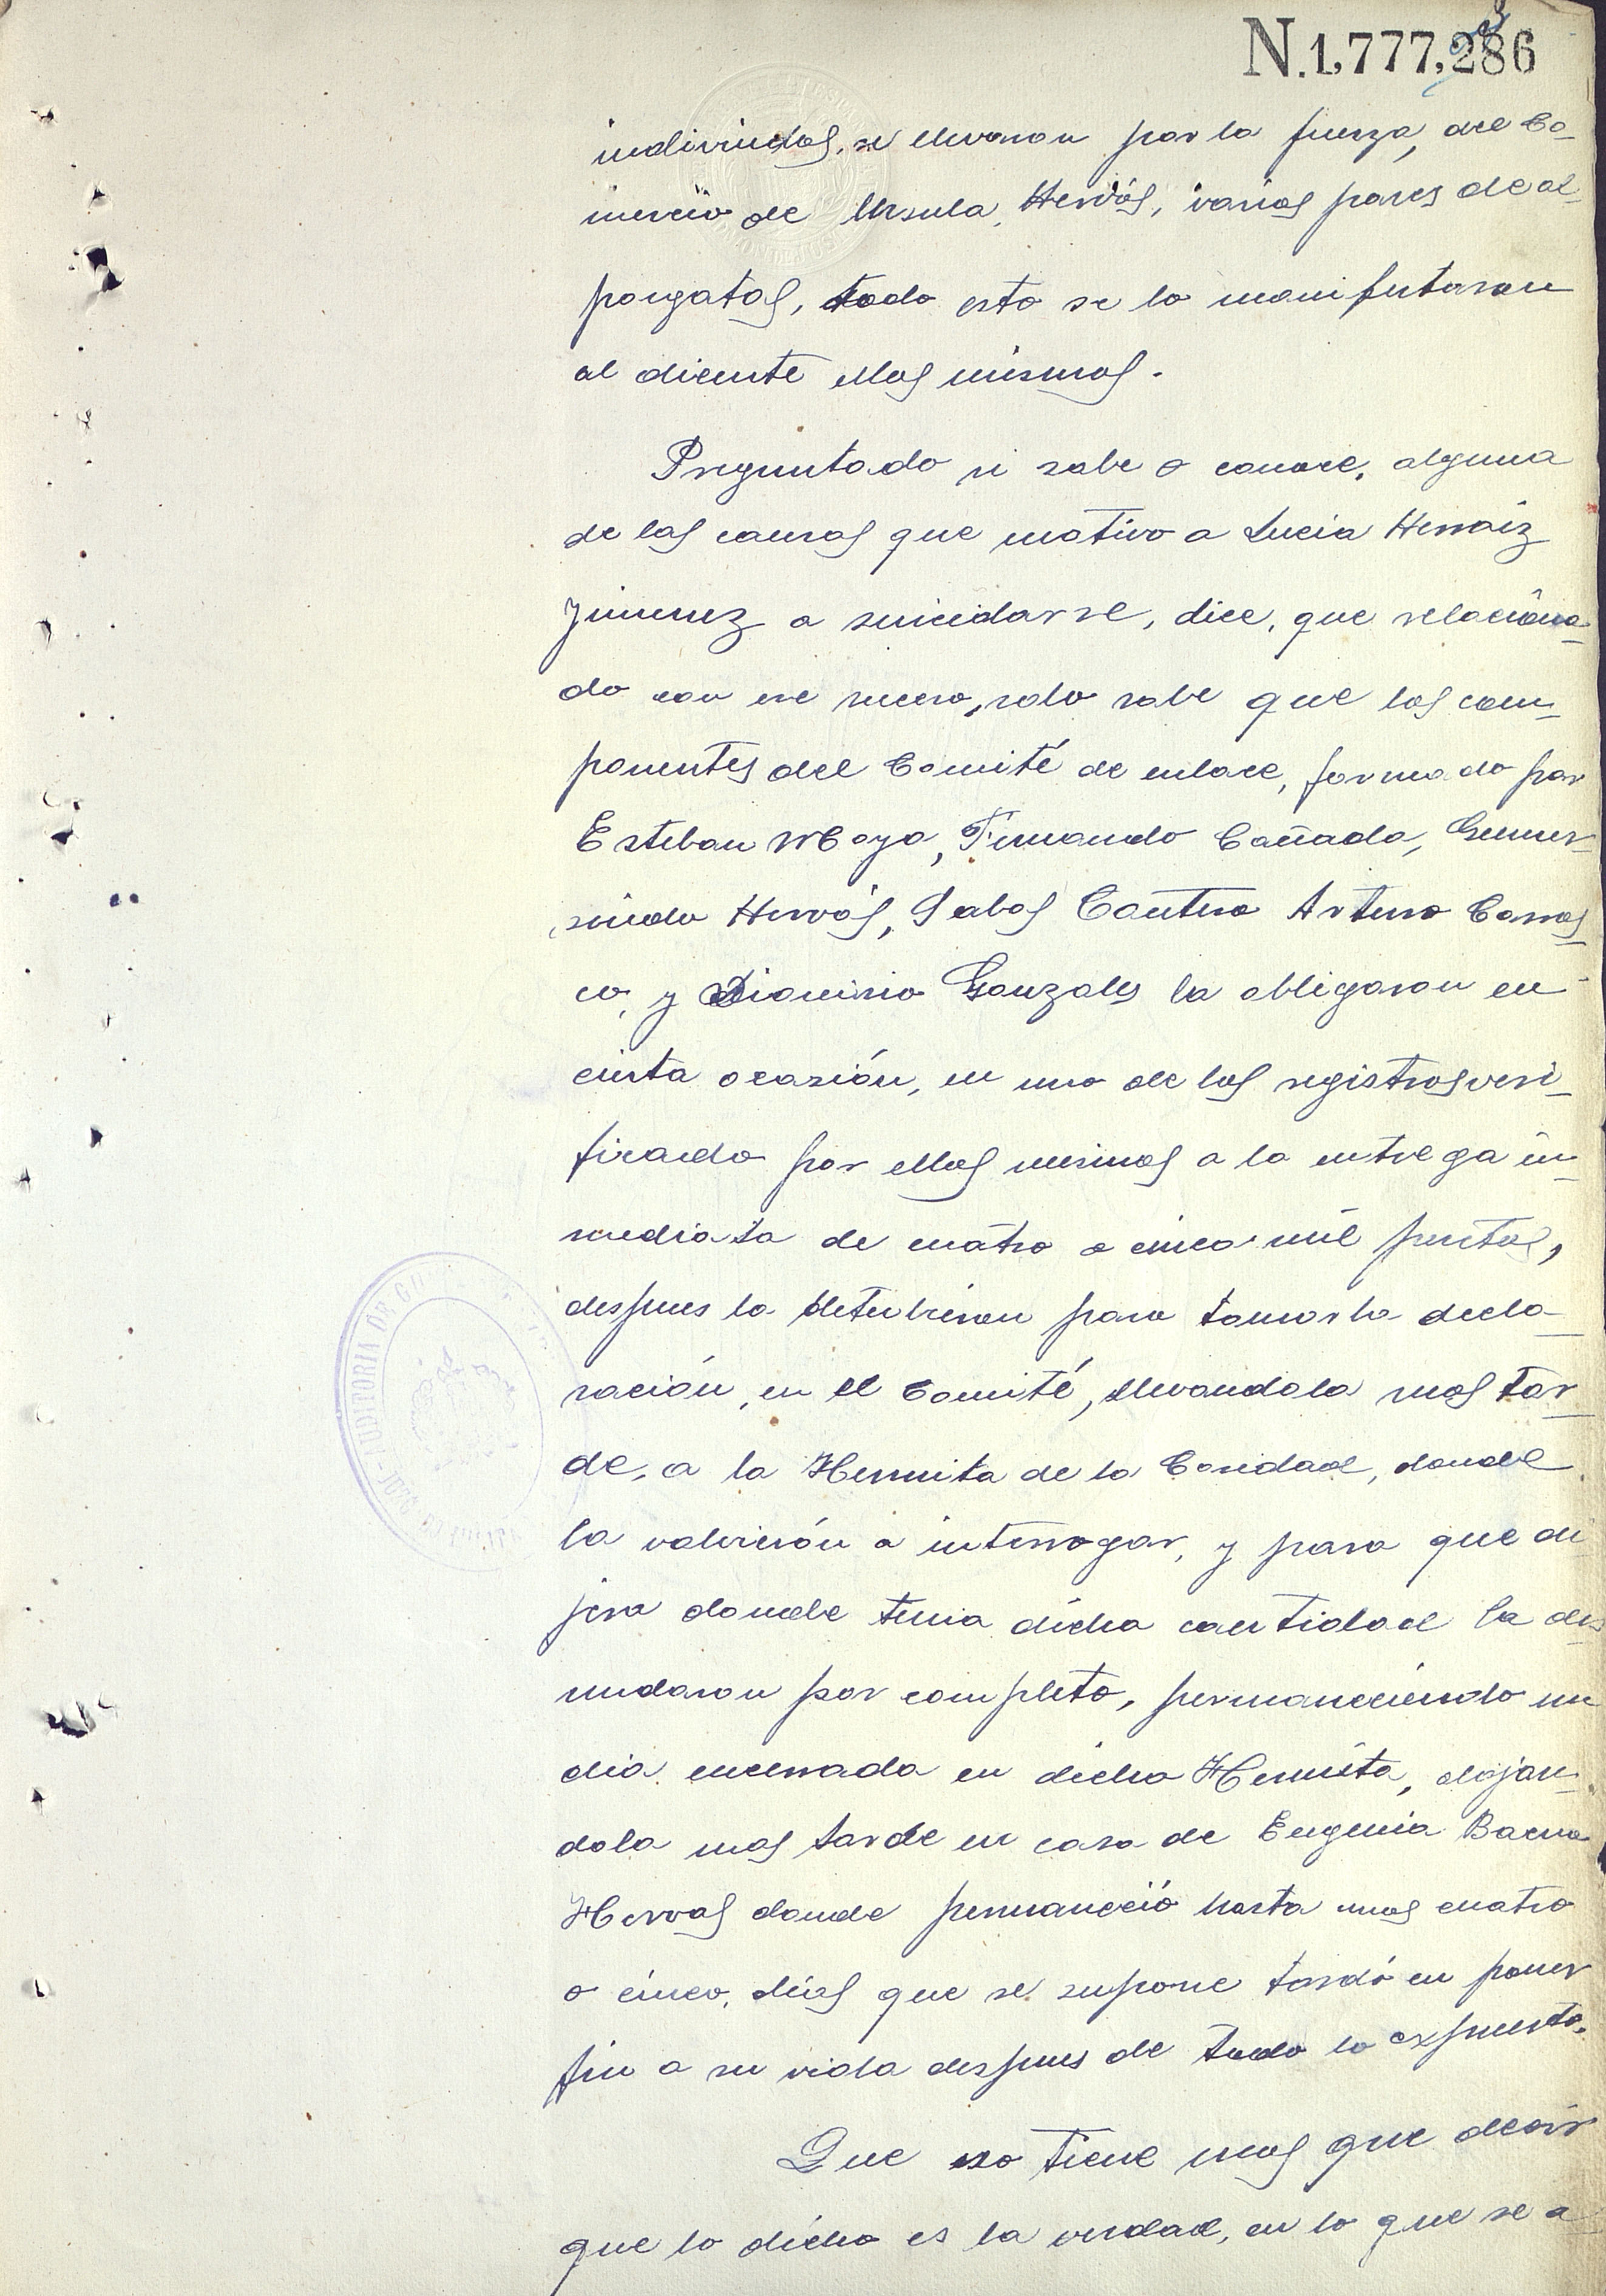 N.1,777,286
individuos, se llevaron por la fuerza, del Co-
mercio de Ursula, Hervás, varios pares de al-
pargatas, todo esto se lo manifestaron
al dicente ellos mismos.
Preguntado si sabe o conoce, alguna
de las causas que motivo a Lucia Herraiz
Jimenez a suicidarse, dice, que relaciona-
do con ese suceso, solo sabe que los com-
ponentes del Comité de enlace, formado por
Esteban Moya, Fernando Cañada, Gumer-
sindo Hervás, Cantero Arturo Carras-
co, y Dionisio Gonzales la obligaron en
cierta ocasión, en uno de los registros veri-
ficado por ellos mismos a la entrega in-
mediata de cuatro o cinco mil pesetas,
despues la detubieron para tomarla decla-
ración, en el Comité, llevandola mas tar-
de, a la Hermita de la Caridad, donde
la volvierón a interrogar, y para que di-
jera donde tenia dicha cantidad la des-
nudaron por completo, permaneciendo un
dia encerrada en dicha Hermita, dejan-
dola mas tarde en casa de Eugenia Baena
Hervas donde permaneció hasta unos cuatro
o cinco, dias que se supone tardó en poner
fin a su vida despues de todo lo expuesto.
Que no tiene mas que decir
que lo dicho es la verdad, en lo que se a
AUDITORIA DE GU